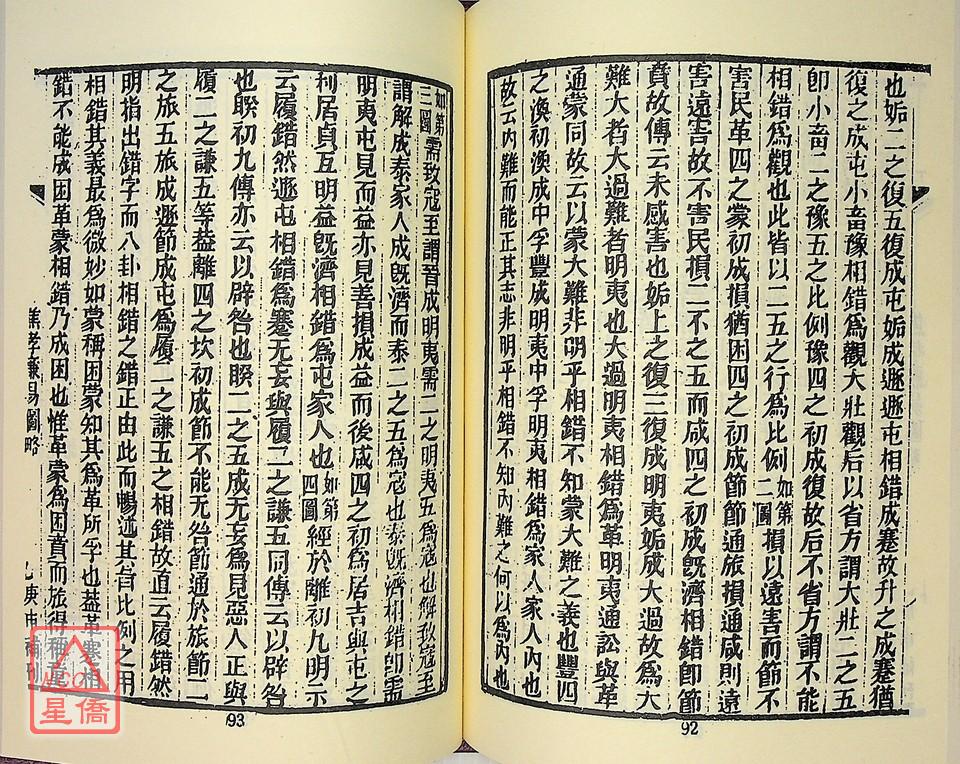 也姤二之復五復成屯姤成遯遯屯相錯成蹇故升之成蹇猶
復之成屯小畜豫相錯為觀大壯觀后以省方謂大壯二之五
卽小畜二之豫五之比例豫四之初成復故后不省方謂不能
相錯為觀也此皆以二五之行為比例如第二圖損以遠害而節不
害民革四之蒙初成損猶困四之初成節節通旅損通咸則遠
害遠害故不害民損二不之五而咸四之初成旣濟相錯卽節
賁故傳云未感害也姤上之復三復成明夷姤成大過故為大
難大者大過難者明夷也大過明夷相錯為革明夷通訟與革
通蒙同故云以蒙大難非明乎相錯不知蒙大難之義也豐四
之渙初渙成中孚豐成明夷中孚明夷相錯為家人家人內也
故云內難而能正其志非明乎相錯不知內難之何以為內也
92
如第三圖需致寇至謂晉成明夷需二之明夷五為寇也解致寇至
謂解成泰家人成旣濟而泰二之五為寇也泰旣濟相錯卽需
明夷屯見而益亦見善損成益而後咸四之初為居吉與屯之
利居貞互明益旣濟相錯為屯家人也如第四圖經於離初九明示
云履錯然遯屯相錯為蹇无妄與履二之謙五同傳云以辟咎
也睽初九傳亦云以辟咎也睽二之五成无妄為見惡人正與
履二之謙五等葢離四之坎初成節不能无咎節通於旅節二
之旅五旅成遯節成屯為履二之謙五之相錯故直云履錯然
明指出錯字而八卦相錯之錯正由此而暢述其旨比例之用
相錯其義最為微妙如蒙稱困蒙知其為革所孚也葢革蒙相
錯不能成困革蒙相錯乃成困也惟革蒙為困賁而旅得稱童
焦孝廉易圖略
庚申補刊
93
NCC
星僑